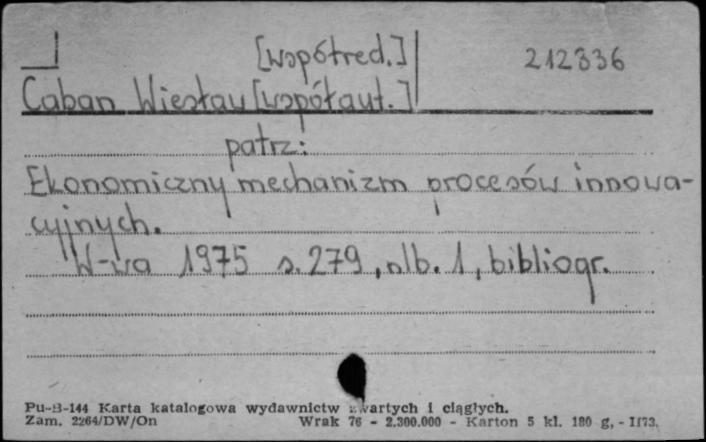 [współred.]
212336
Caban Wiesław [współaut.]
patrz:
Ekonomiczny mechanizm procesów innowa-
cyjnych.
W-wa 1975 s. 279, nlb. 1, bibliogr.
Pu-B-144 Karta katalogowa wydawnictw zwartych i ciągłych.
Zam. 2264/DW/On Wrak 76 - 2.300.000 - Karton 5 kl. 180 g, - II73.